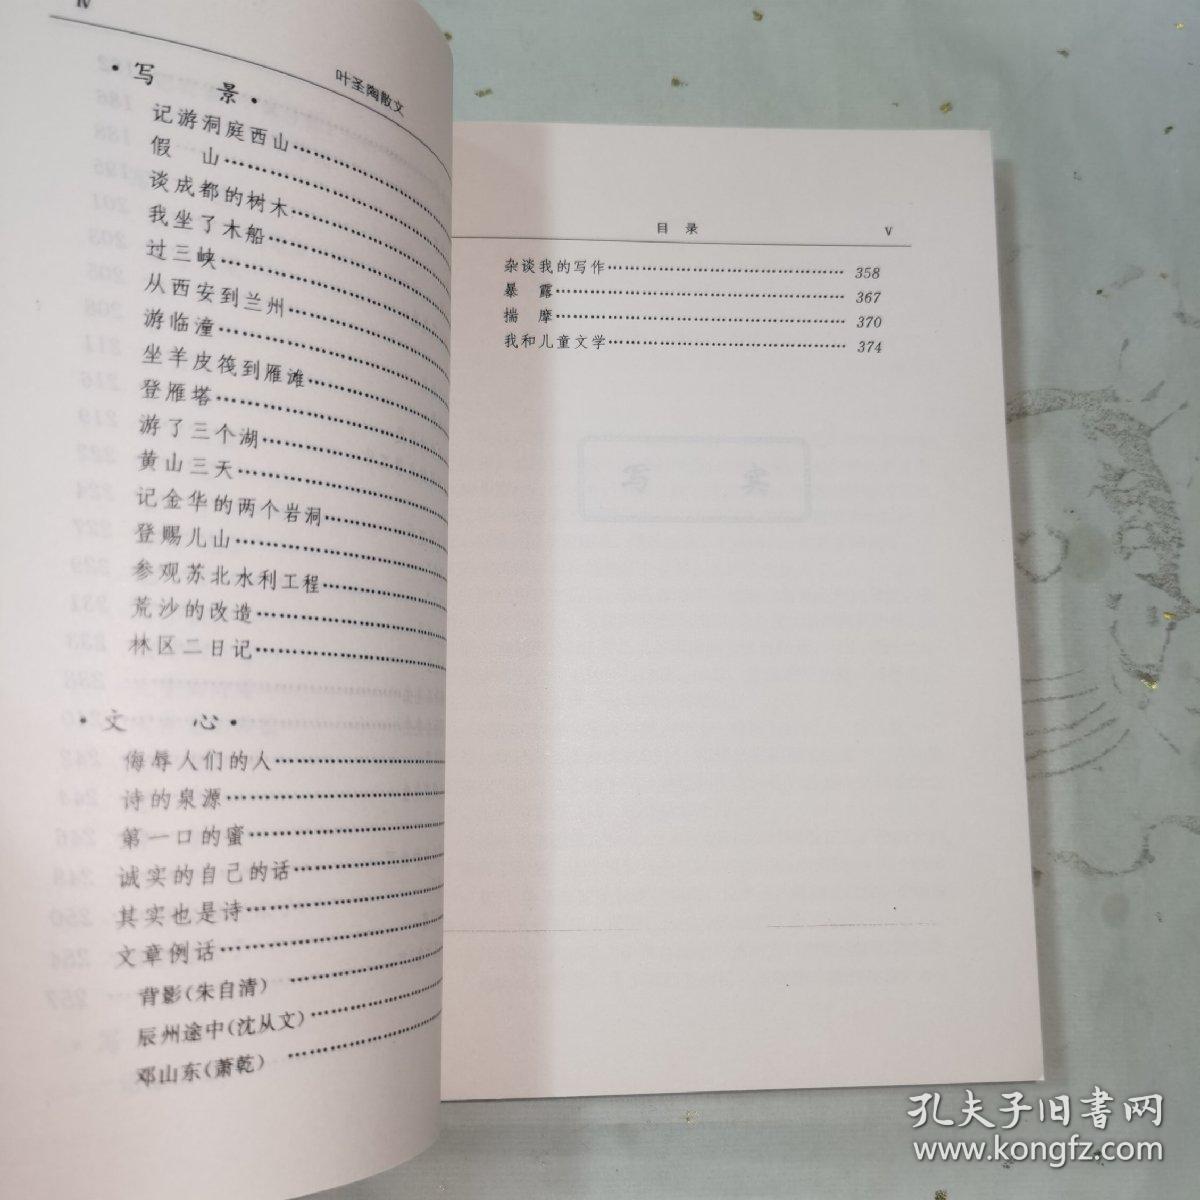 IV
叶圣陶散文
·写 景·
记游洞庭西山
假 山
谈成都的树木
我坐了木船
过三峡
从西安到兰州
游临潼
坐羊皮筏到雁滩
登雁塔
游了三个湖
黄山三天
记金华的两个岩洞
登赐儿山
参观苏北水利工程
荒沙的改造
林区二日记
·文 心·
侮辱人们的人
诗的泉源
第一口的蜜
诚实的自己的话
其实也是诗
文章例话
背影(朱自清)
辰州途中(沈从文)
邓山东(萧乾)
目 录 V
杂谈我的写作 358
暴 露 367
揣 摩 370
我和儿童文学 374
写 实
孔夫子旧书网
www.kongfz.com